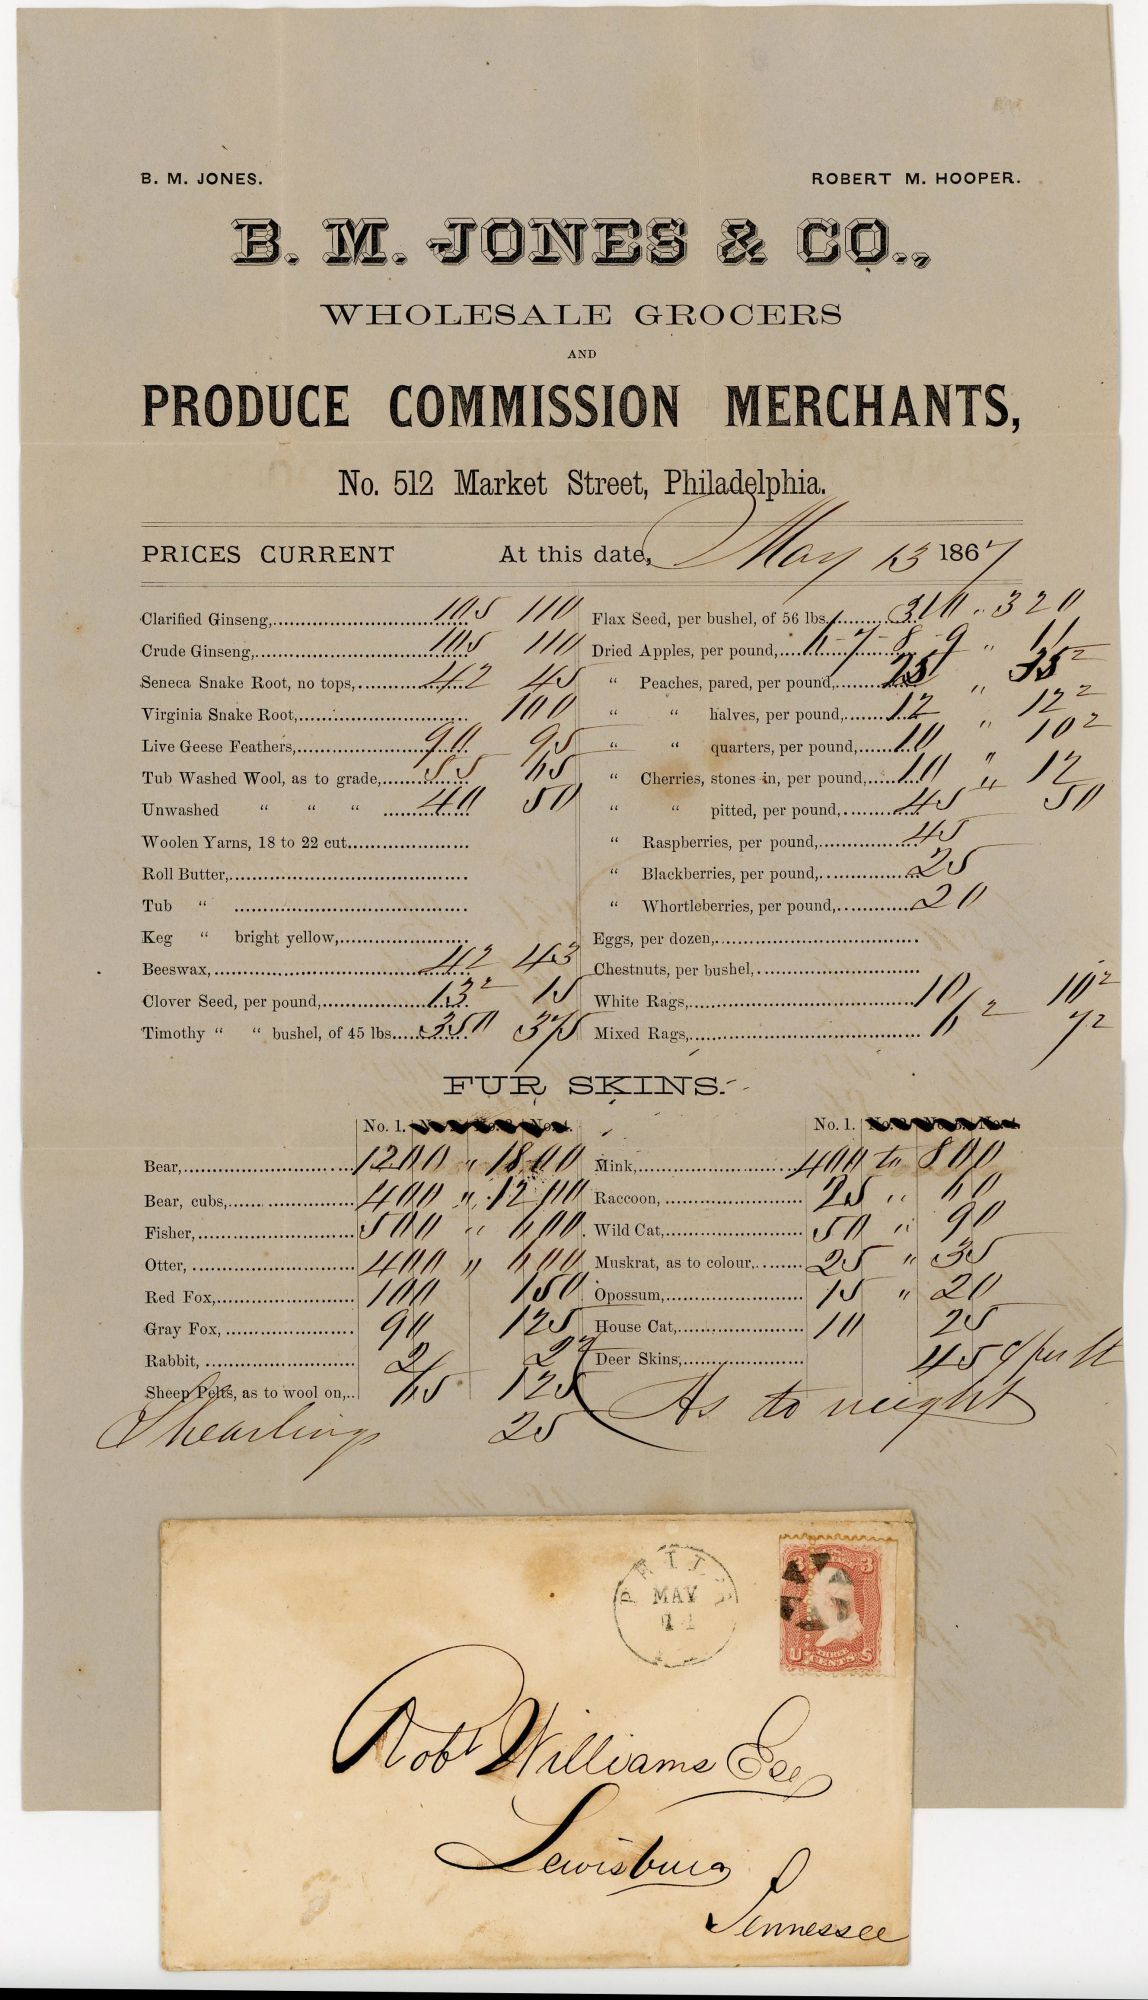 B. M. JONES. ROBERT M. HOOPER.
B. M. JONES & CO.,
WHOLESALE GROCERS
AND
PRODUCE COMMISSION MERCHANTS,
No. 512 Market Street, Philadelphia.
PRICES CURRENT At this date, May 13 1867
Clarified Ginseng, 105 110
Crude Ginseng, 105 110
Seneca Snake Root, no tops, 42 45
Virginia Snake Root, 100
Live Geese Feathers, 90 95
Tub Washed Wool, as to grade, 55 65
Unwashed " " " 40 50
Woolen Yarns, 18 to 22 cut
Roll Butter,
Tub "
Keg " bright yellow,
Beeswax, 42 43
Clover Seed, per pound, 13 2 15
Timothy " " bushel, of 45 lbs 350 375
Flax Seed, per bushel, of 56 lbs. 310 " 320
Dried Apples, per pound, 6-7-8-9 " 11
" Peaches, pared, per pound, 25 " 35 2
" " halves, per pound, 12 " 12 2
" " quarters, per pound, 10 " 10 2
" Cherries, stones in, per pound, 10 " 12
" " pitted, per pound, 45 " 50
" Raspberries, per pound, 45
" Blackberries, per pound, 25
" Whortleberries, per pound, 20
Eggs, per dozen,
Chestnuts, per bushel,
White Rags, 10 10 2
Mixed Rags, 6 2 7 2
FUR SKINS.
No. 1.
Bear, 1200 " 1800
Bear, cubs, 400 " 1200
Fisher, 500 " 600
Otter, 400 " 600
Red Fox, 100 150
Gray Fox, 90 125
Rabbit, 2 2 2
Sheep Pelts, as to wool on, 65 125
Shearlings 25
No. 1.
Mink, 400 to 800
Raccoon, 25 " 60
Wild Cat, 50 " 90
Muskrat, as to colour, 25 " 35
Opossum, 15 " 20
House Cat, 10 25
Deer Skins, 45
As to weight
PHILA
MAY
14
U.S. 3
3
U S
Robt Williams Esq
Lewisburg
Tennessee